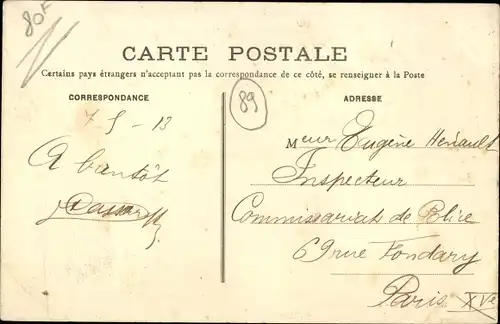 80F
CARTE POSTALE
Certains pays étrangers n'acceptant pas la correspondance de ce côté, se renseigner à la Poste
CORRESPONDANCE
7 5 - 13
A bientôt
89
ADRESSE
Meur Eugène Henault
Inspecteur
Commissariat de Police
69 rue Fondary
Paris XVe